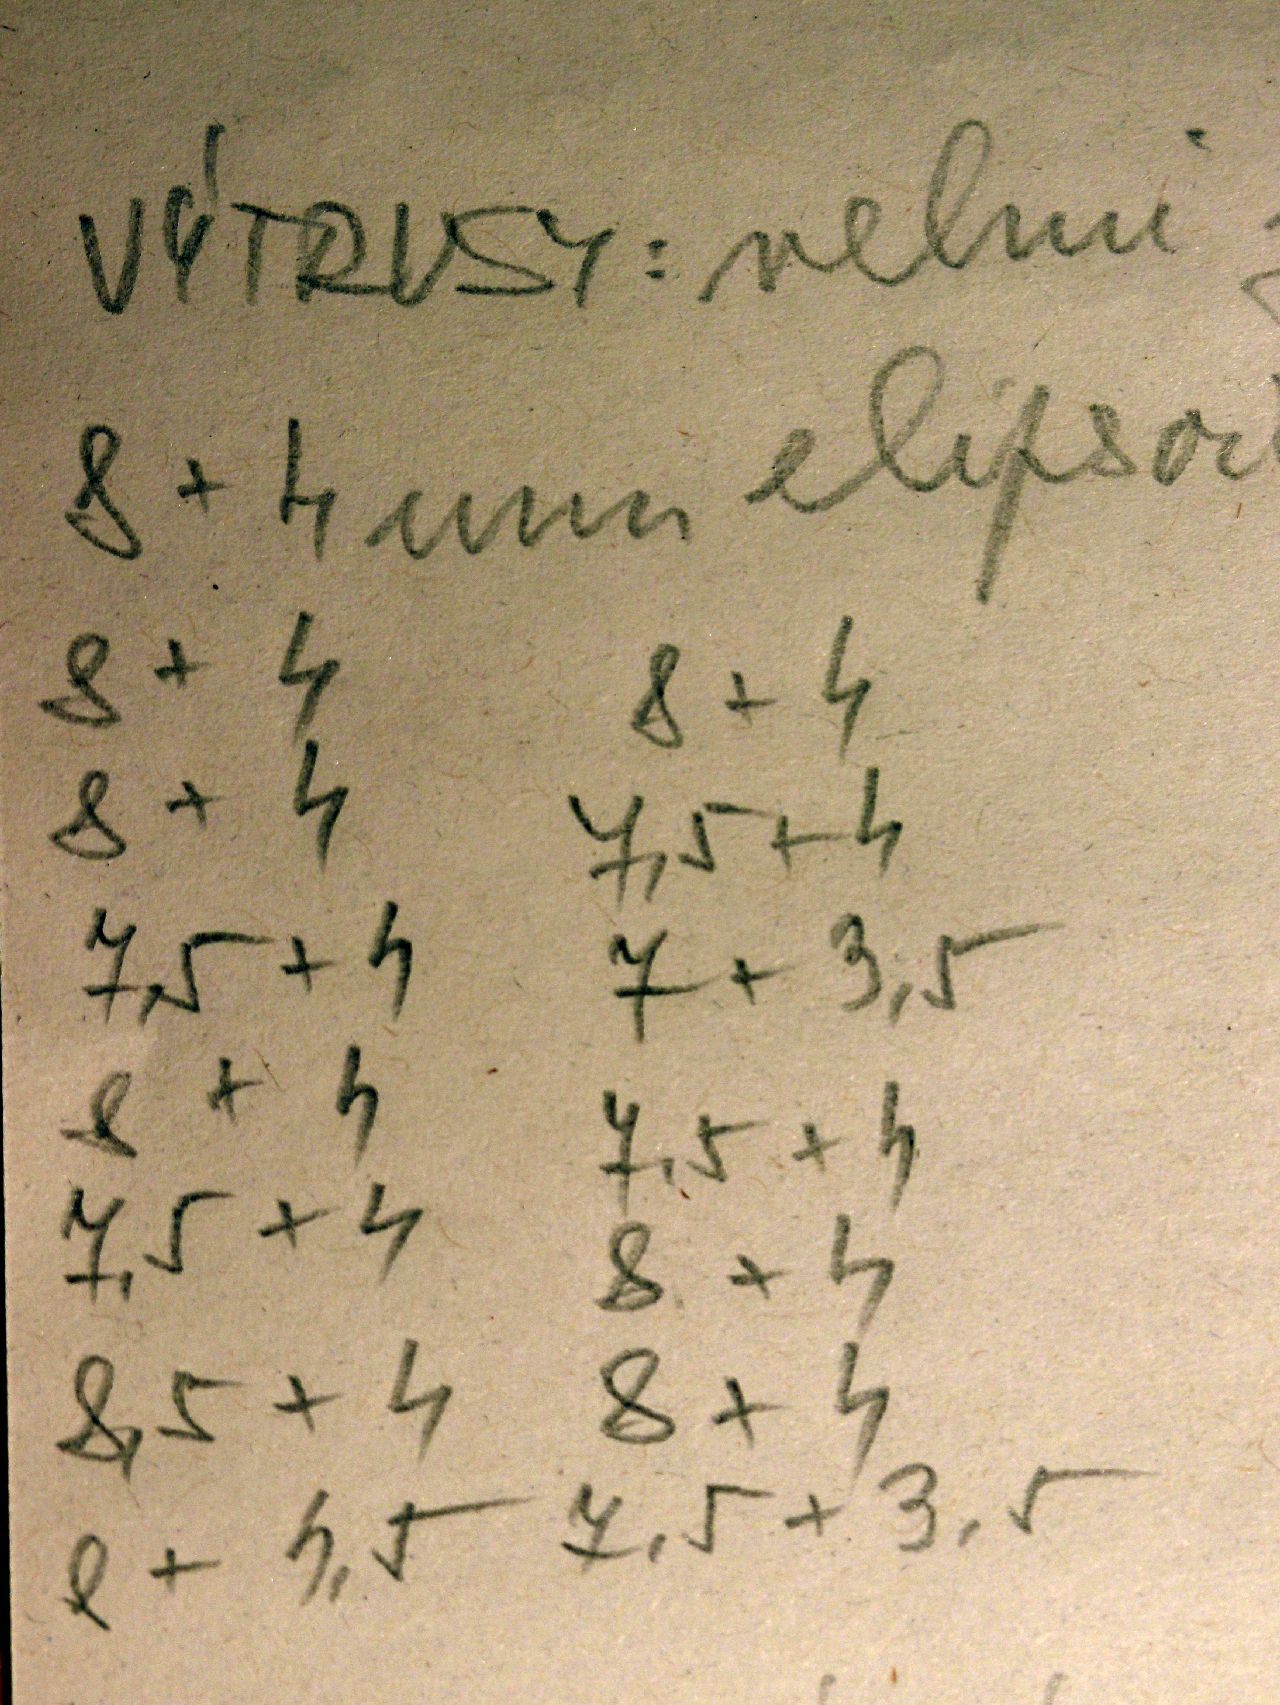 VÝTRUSY: velmi
8 + 4 um elipsoi
8 + 4 8 + 4
8 + 4 7,5 + 4
7,5 + 4 7 + 3,5
8 + 4 7,5 + 4
7,5 + 4 8 + 4
8,5 + 4 8 + 4
8 + 4,5 7,5 + 3,5